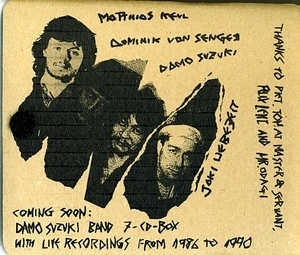 MATTHIAS KEUL
DOMINIK VON SENGER
DAMO SUZUKI
JAKI LIEBEZEIT
THANKS TO PRT, TOM AT MASTER & SERVANT,
AND
COMING SOON:
DAMO SUZUKI BAND 7-CD-BOX
WITH LIVE RECORDINGS FROM 1986 TO 1990